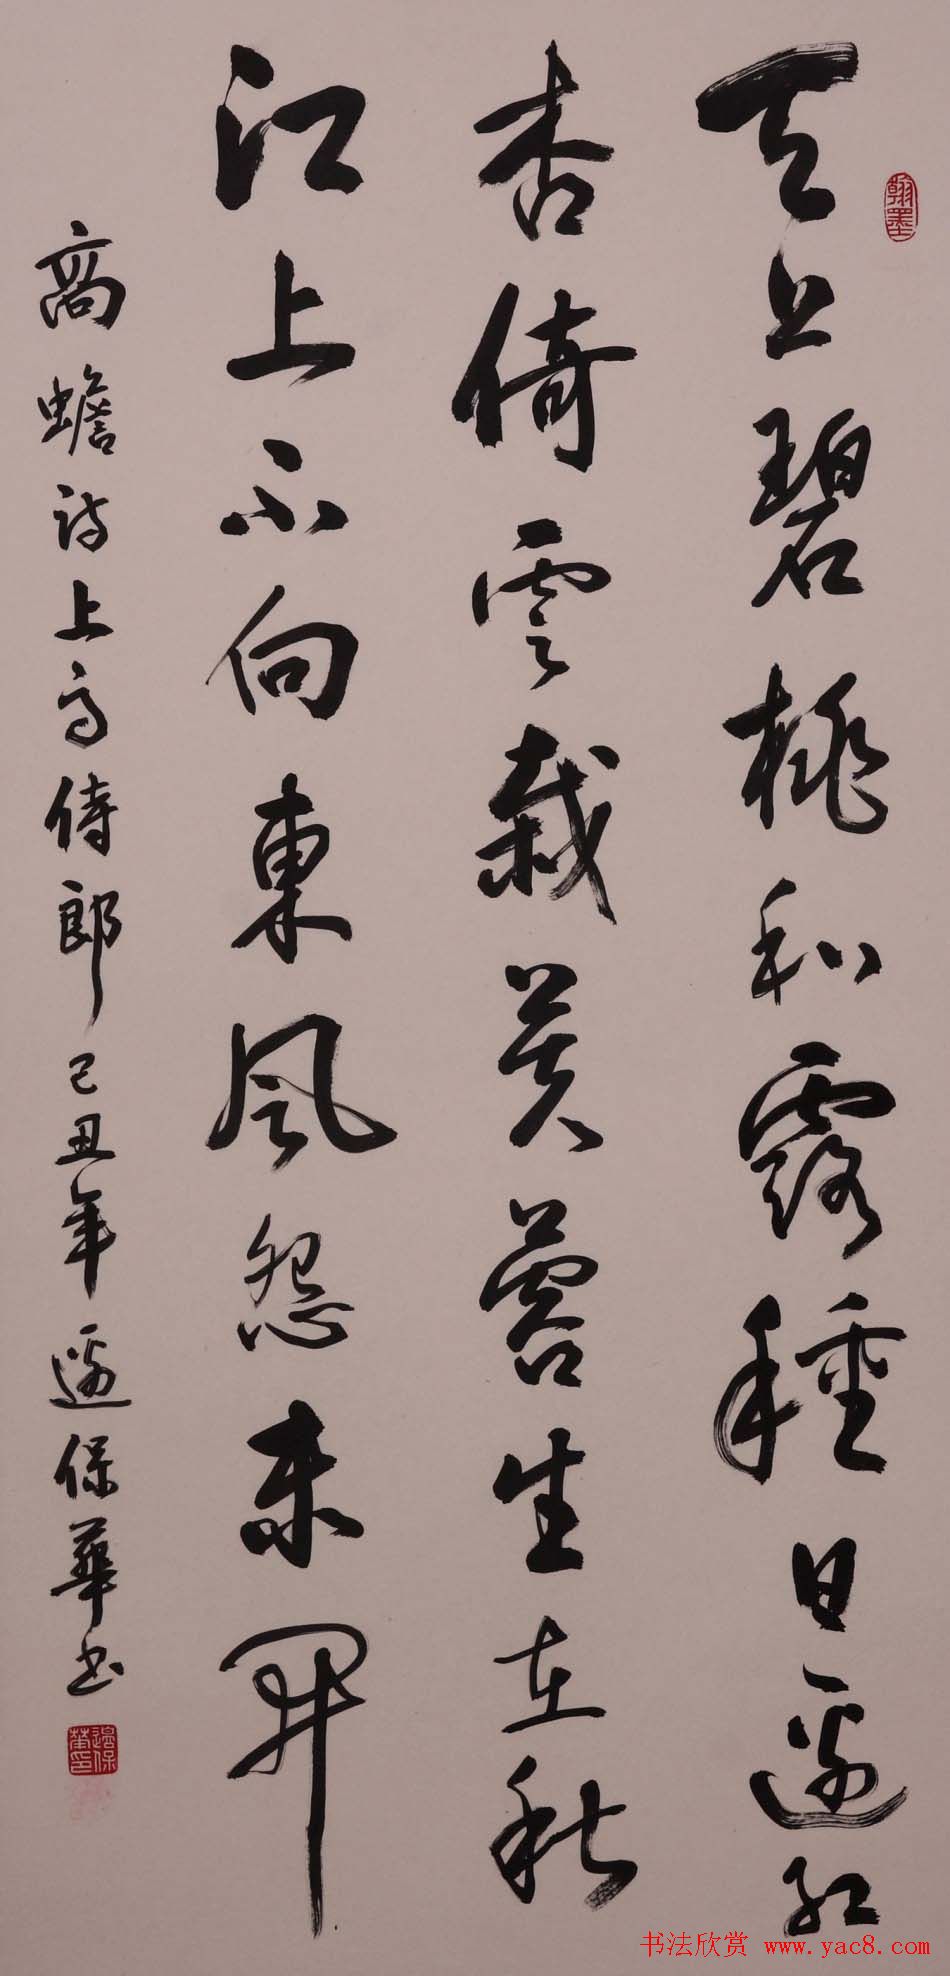 翰墨
天上碧桃和露種日邊紅
杏倚雲栽芙蓉生在秋
江上不向東風怨未開
高蟾詩上高侍郎己丑年邊保華书
邊保華印
书法欣赏 www.yac8.com